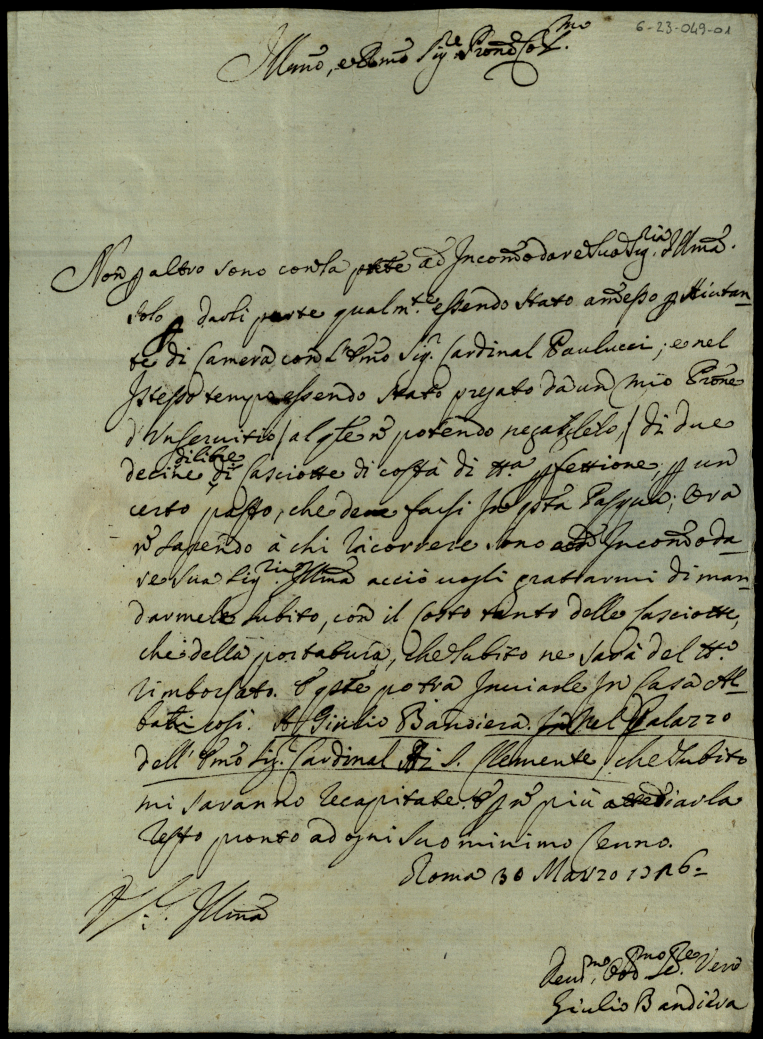 6-23-049-01
Illmo, e Rmo Sigre Prone Colmo
Non p altro sono con la pnte ad Incomodare Sua Sigria Illma.
solo p darli parte qualmte essendo stato amesso p Aiutan-
te di Camera con l'Emo Sigr Cardinal Paulucci; e nel
Istesso tempo essendo stato pregato da un mio Prone
d'Inservitio / al qle nō potendo negarglielo / di due
decine di libre di Casciotte di costà di tta pfettione, p un
certo pasto, che deve farsi in qsta Pasqua; ora
nō sapendo à chi ricorrere sono ad Incomoda-
re sua Sigria Illma acciò vogli gratiarmi di man-
darmele subito, con il Costo tanto delle Casciotte,
che della portatura, che subito ne sarà del tto
rimborsato. E qste potrà Inviarle In Casa Al-
bani così. A Giulio Bandiera nel Palazzo
dell' Emo Sigr Cardinal di S. Clemente / che subito
mi saranno recapitate. E p nō più attediarla
resto pronto ad ogni suo minimo Cenno.
Roma 30 Marzo 1716=
V. S. Illma
Devmo, Obbmo Sere Vero
Giulio Bandiera